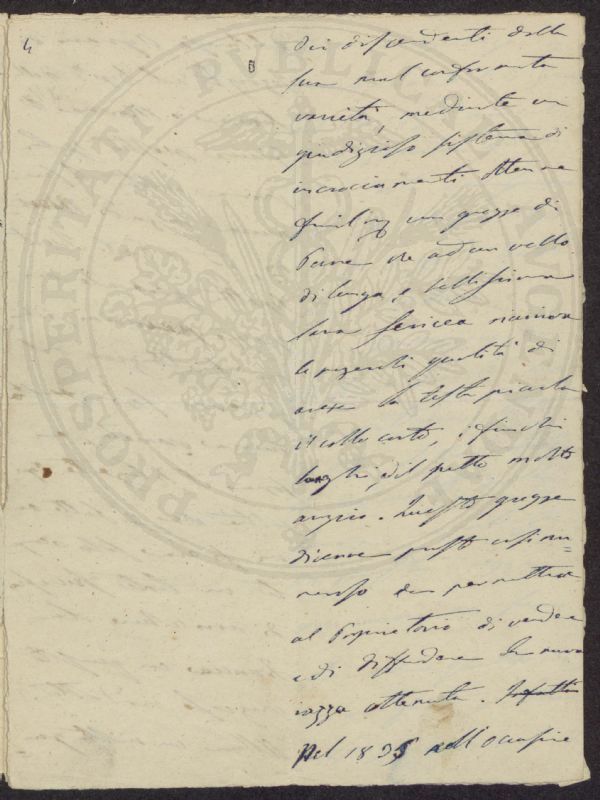 4
dei discendenti della
sua mal conformata
varietà, mediante un
giudizioso sistema di
incrociamenti ottenne
un gregge di
che ad un vello
di lunga, e bellissima
lana sericea riuniva
le qualità di
avere la testa piccola
il collo corto, i fianchi
larghi, ed il petto molto
ampio. Questo gregge
divenne presto così nu=
meroso da permettere
al Proprietario di vendere
e di diffondere la nuova
razza ottenuta. Infatti
Nel 1835 nell'occasione
PROSPERITATI PUBLICAE AUGENDAE